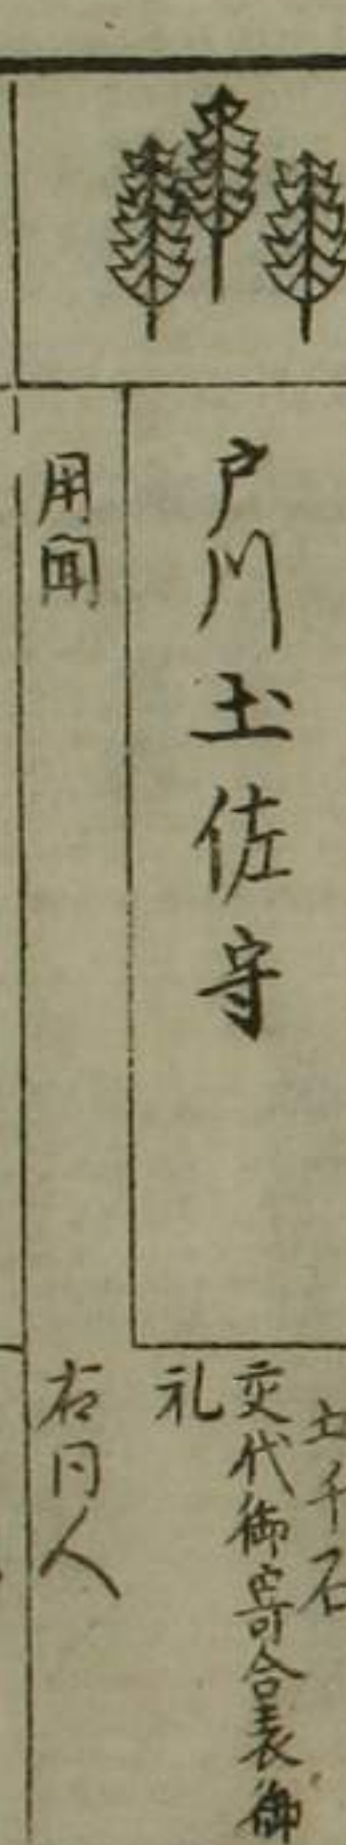 戸川土佐守
五千石
交代御寄合表御
礼
用聞
右同人